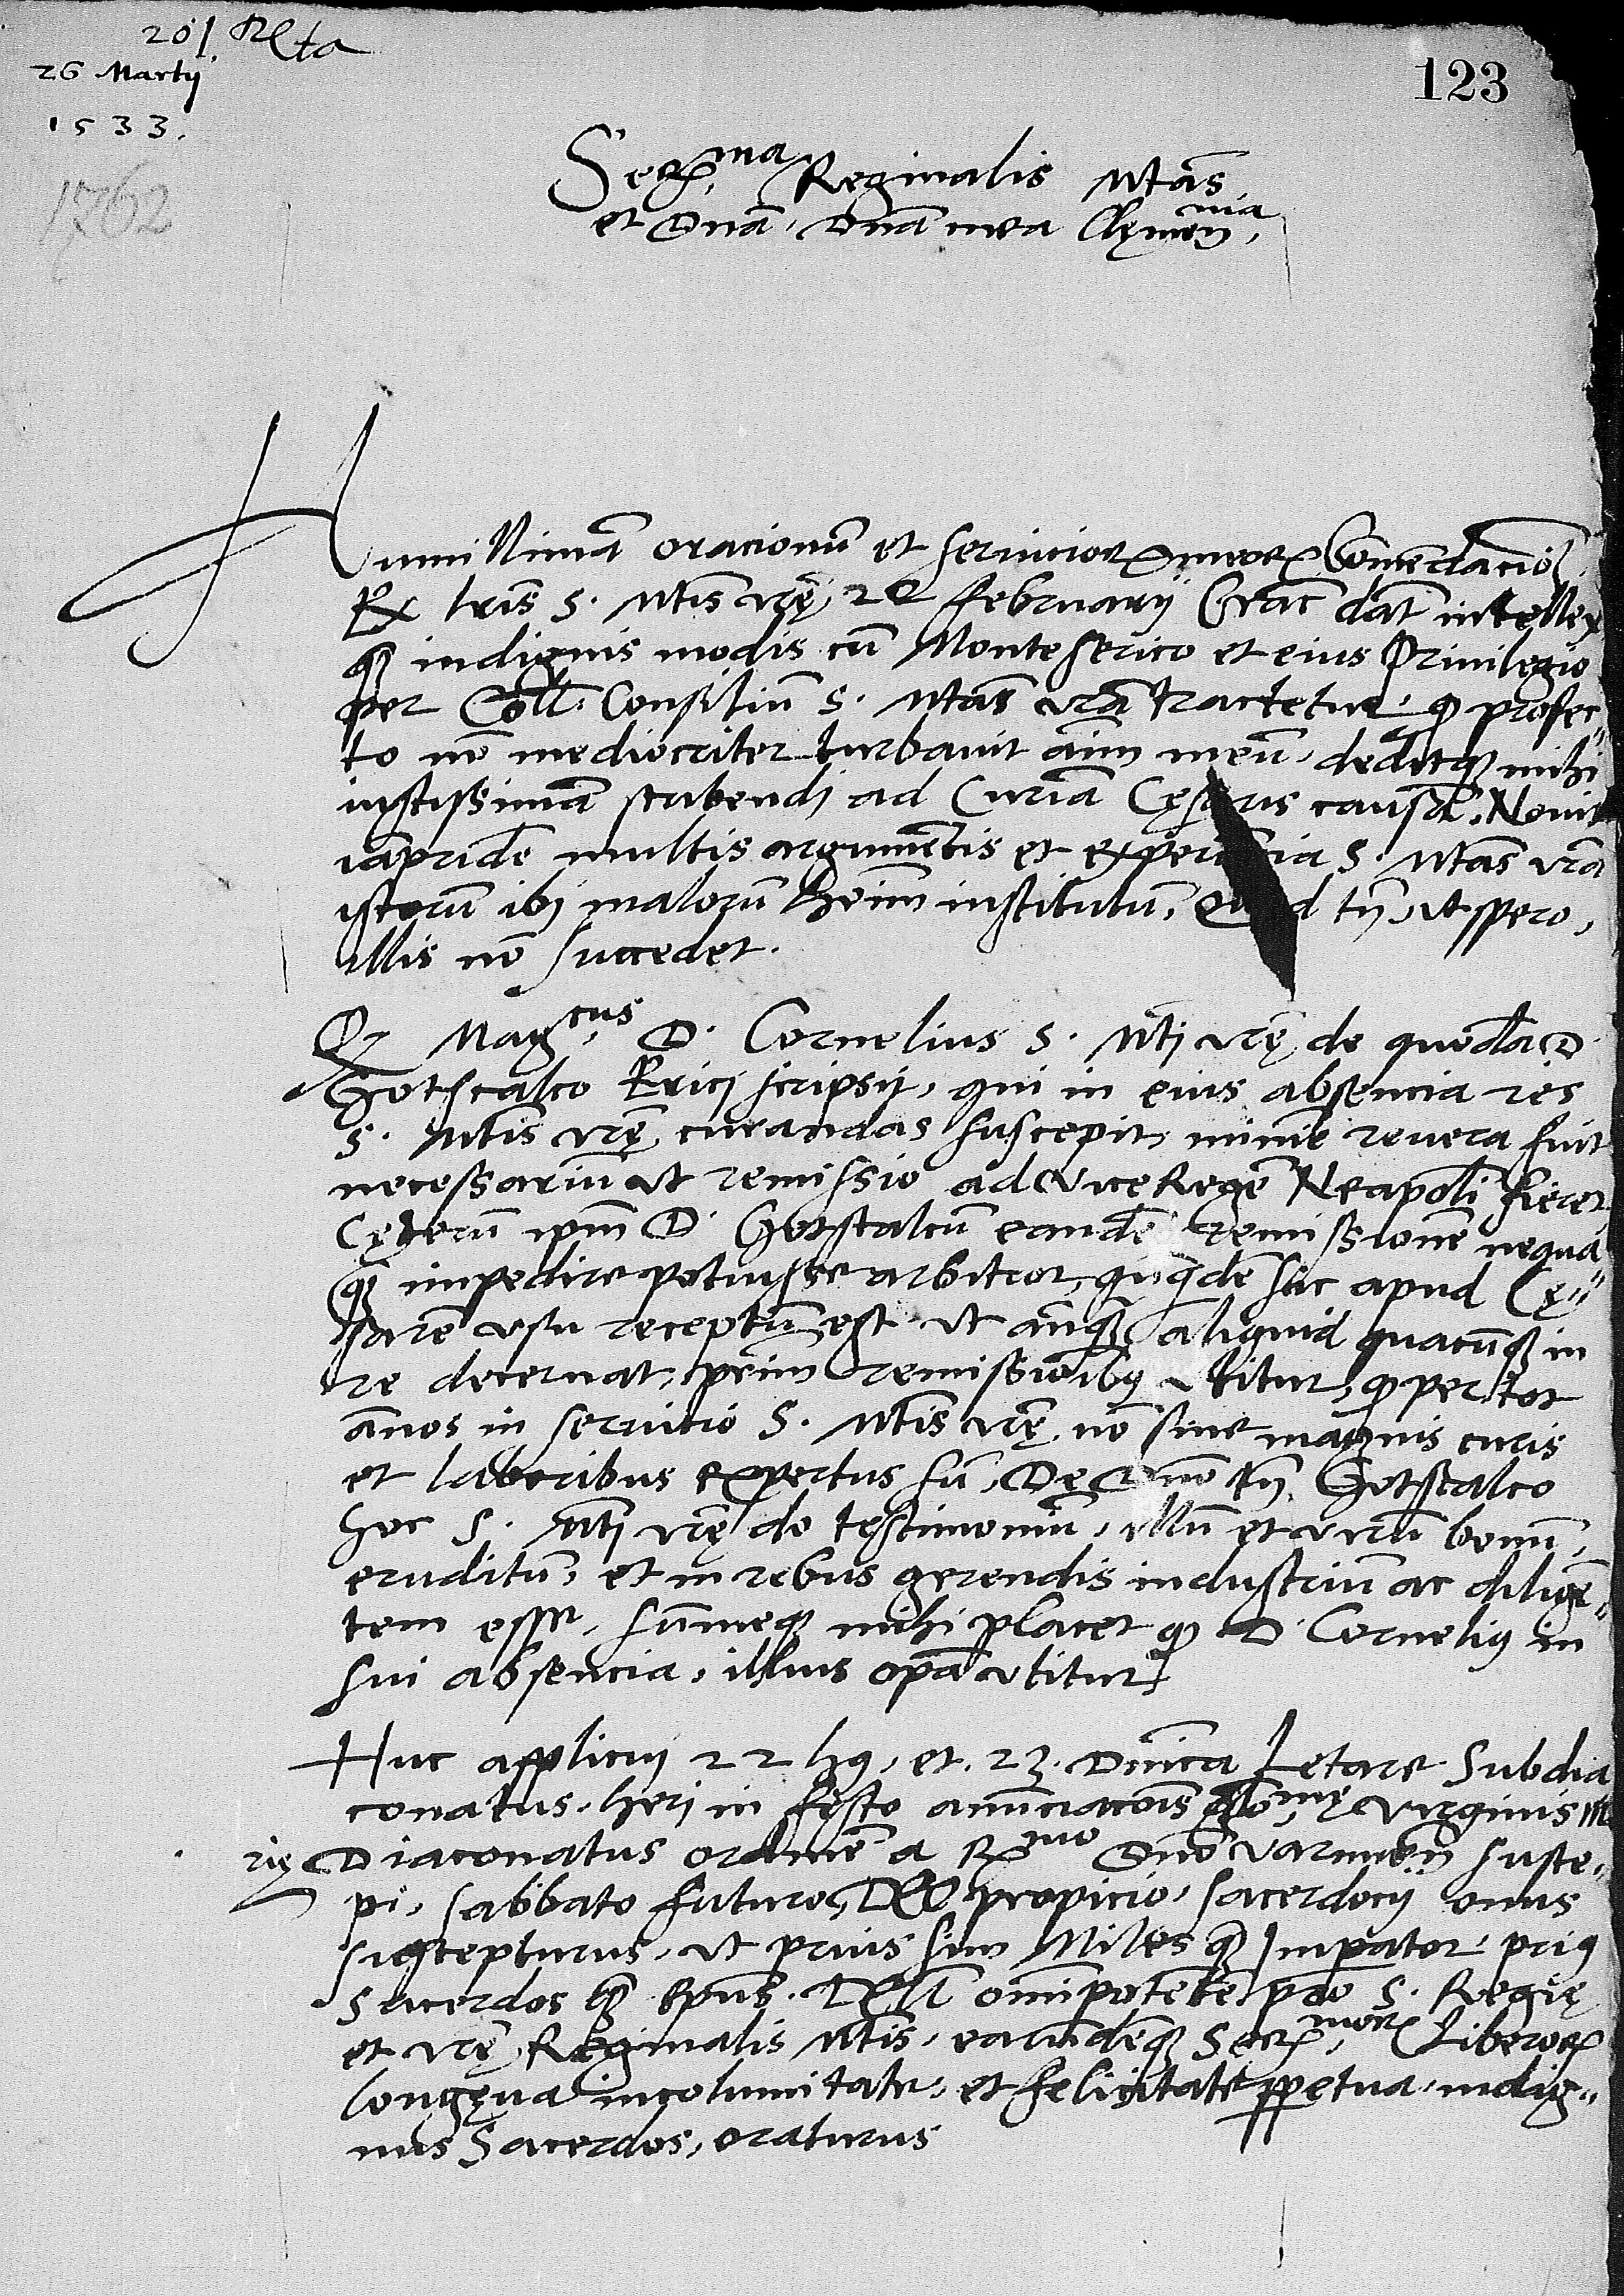 201 Rta
26 Martij
1533.
123
1762
Ser.ma Reginalis Mtas
et Dna, Dna mea Clemen.ma
Humillimam oracionum et serviciorum meorum Comendacionem
Ex lris S. Mtis vrę, 22 Februarij Crac dat intellexi
qm indignis modis cu Monteserico et eius Privilegio
per Coll. Consilium S. Mtas vra tractetur, qd profec-
to no mediocriter turbavit aim meu, deditq mihi
iustissima scribendi ad Curia Cęsaris causa. Novit
iapride multis argumetis et experiencia S. Mtas vra
istorum ibi malorum heim institutu, Quod tn, ut spero,
illis no succedet.
Qz Mag.cus D. Cornelius S. Mti vrę de quoda D.
Gotscalco Erici scripsit, qui in eius absencia res
S. Mtis vrę curandas suscepit, minie revera fuit
necessarium ut remissio ad viceRege Neapoli fieret
Cęterum ipm D. Gotscalcu eande remissione nequa
qm impedire potuisse arbitror, quiqde sic apud Cę-
sare usu receptu est, ut anqm aliquid quacuq in
re decernat, prim remissioibus utitur, qd per tot
annos in servicio S. Mtis vrę, no sine magnis curis
et laboribus expertus su, De Dno tn Gotscalco
hoc S. Mti vrę do testimoniu, illu et viru bonu,
eruditu, et in rebus gerendis industriu ac dilige-
tem esse, sumeq mihi placet qd D. Cornelius in
sui absencia, illius opa utitur.
Huc applicui 22 hus, et 23. Dnica Letare Subdia
conatus, heri in festo anunciacois glo.mę Virginis Ma
rię Diaconatus ordine a R.mo Dno Varmien susce-
pi, sabbato futuro, DEO propicio, sacerdocij onus
suscepturus, ut prius sim Miles qm Impator, prius
Sacerdos qm Epus. DEU omipotete pro S. Regię
et vrę Reginalis Mtis, earundeq Ser.morum Liberorum
longęva incolumitate, et felicitate ppetua, indig-
nus Sacerdos, oraturus